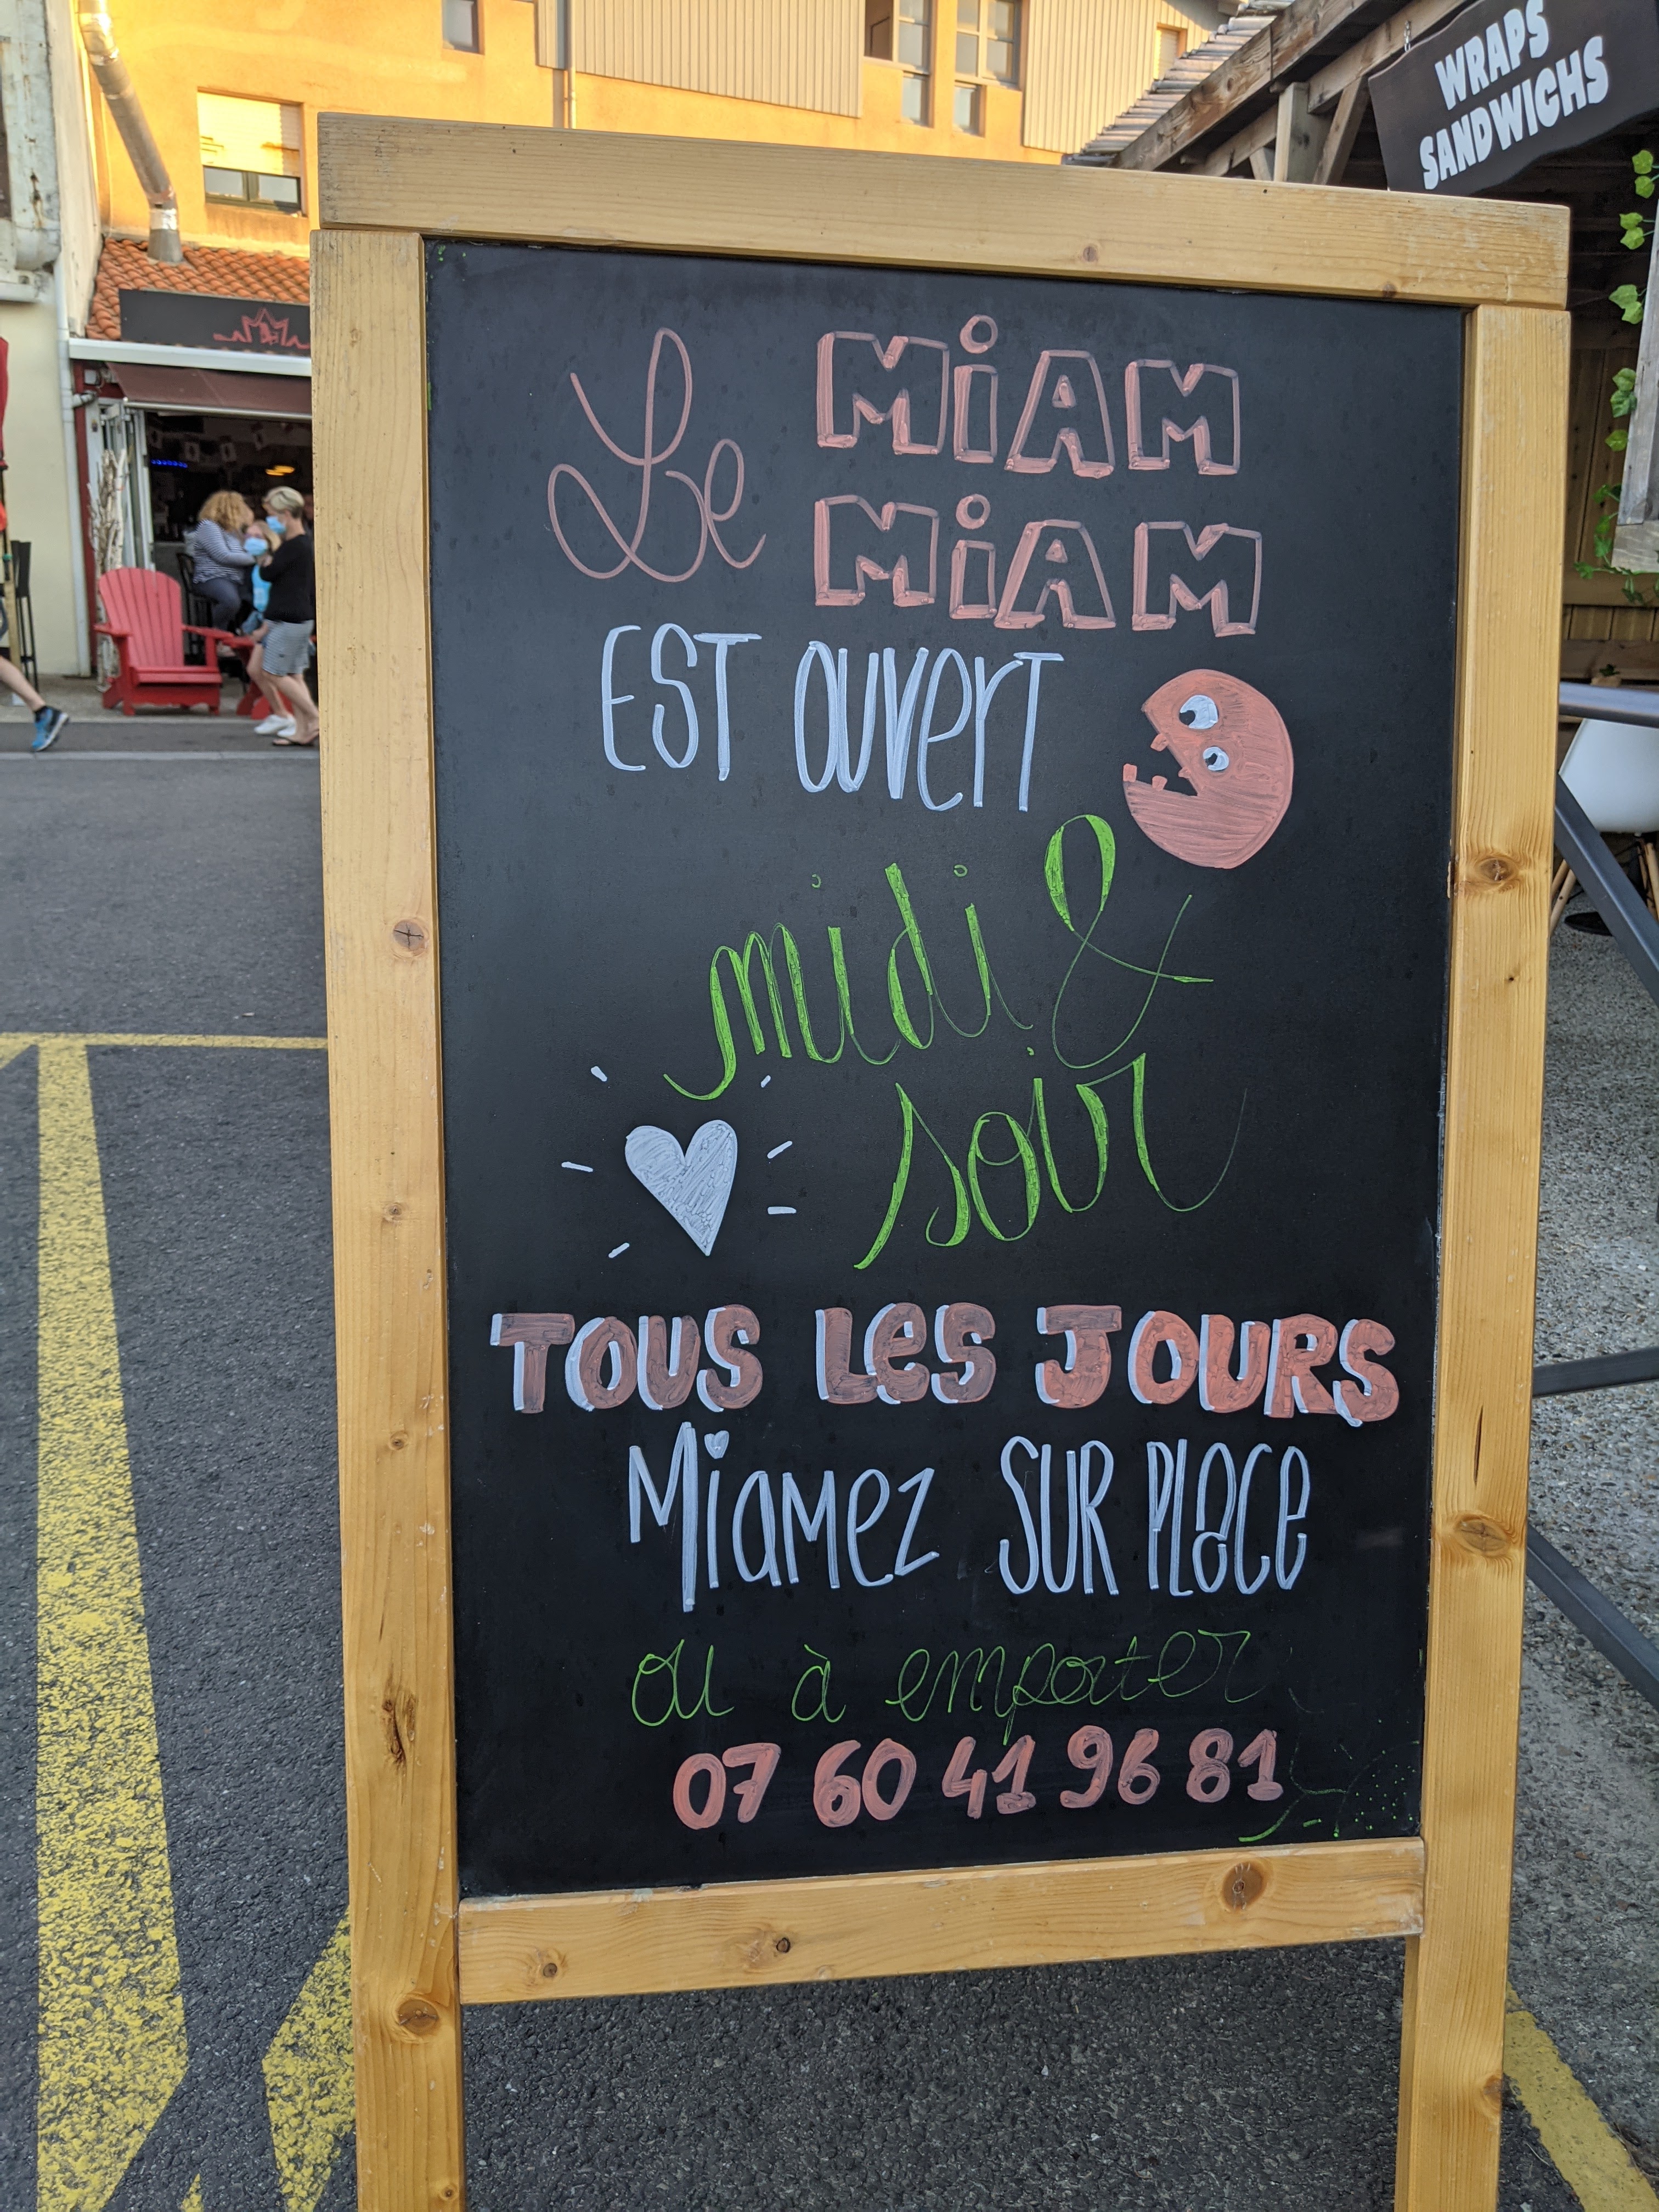 WRAPS
SANDWICHS
Le MiAM
MiAM
EST OUVERT
midi &
soir
TOUS LES JOURS
Miamez SUR PLACE
ou à emporter
07 60 41 96 81